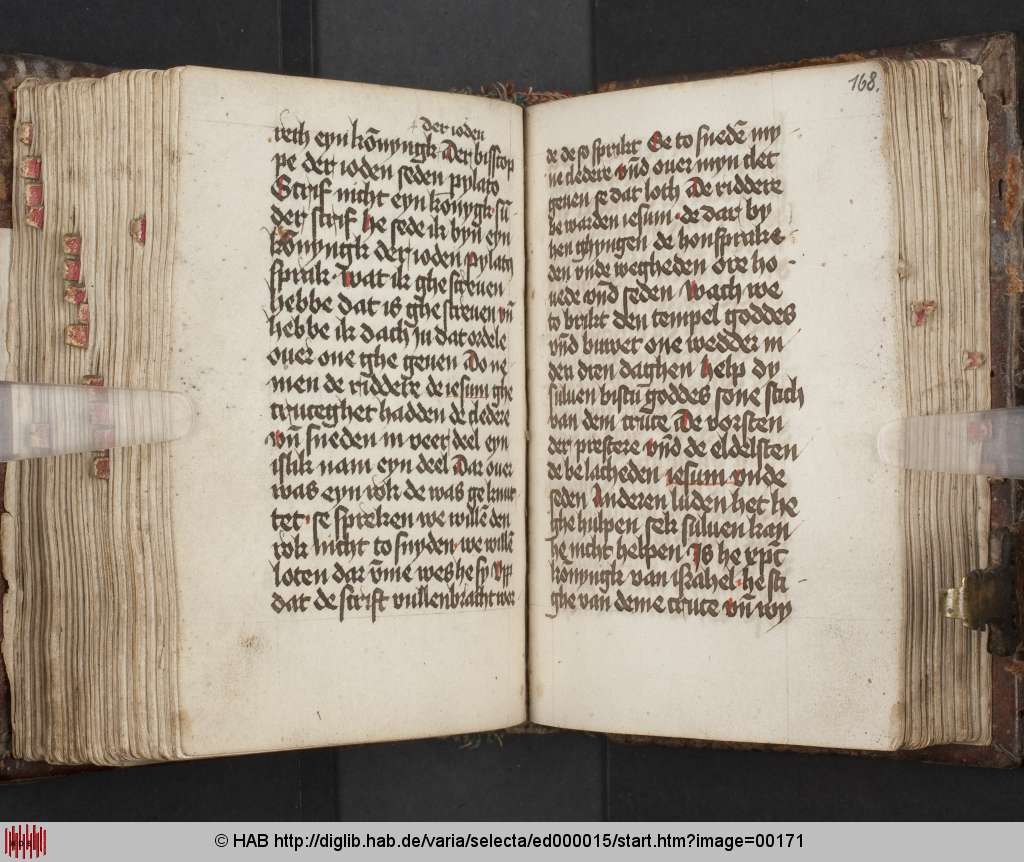 der ioden
rech eyn kōnyngk Der bisscop
pe der ioden seden pylato
Scrif nicht eyn kōnygk su̅
der scrif he sede ik byn eyn
kōnyngk der ioden Pylatꝫ
sprak · wat ik ghescreuen
hebbe dat is ghescreuen vn̄
hebbe ik dach In dat ordele
ouer one ghe geuen Do ne
men de riddere de iesum ghe
cruceghet hadden de cledere
Vn̄ sneden in veer deel eyn
islik nam eyn deel Dar ouer
was eyn rok de was geknut
tet · se spreken we willē den
rok nicht to snyden · we willē
loten dar v̄me wes he sy Vpp
dat de scrift vullenbracht wer
168.
de de so sprikt Se to snedē my
ne cledere vn̄d ouer myn clet
geuen se dat loth De riddere
be warden iesum · de dar by
hen ghyngen de honsprake
den vnde wegheden ore ho
uede vn̄d seden Wach we
to brikt den tempel goddes
vn̄d buwet one wedder in
den dren daghen help dy
suluen bistu goddes sone stich
van dem cruce De vorsten
der prestere vn̄d de eldelsten
de be lacheden iesum vnde
seden Anderen luden het he
ghe hulpen sek suluen kan
he nicht helpen Is he xpc
kōnyngk van israhel · he sti
ghe van deme cruce vn̄ wy
© HAB http://diglib.hab.de/varia/selecta/ed000015/start.htm?image=00171